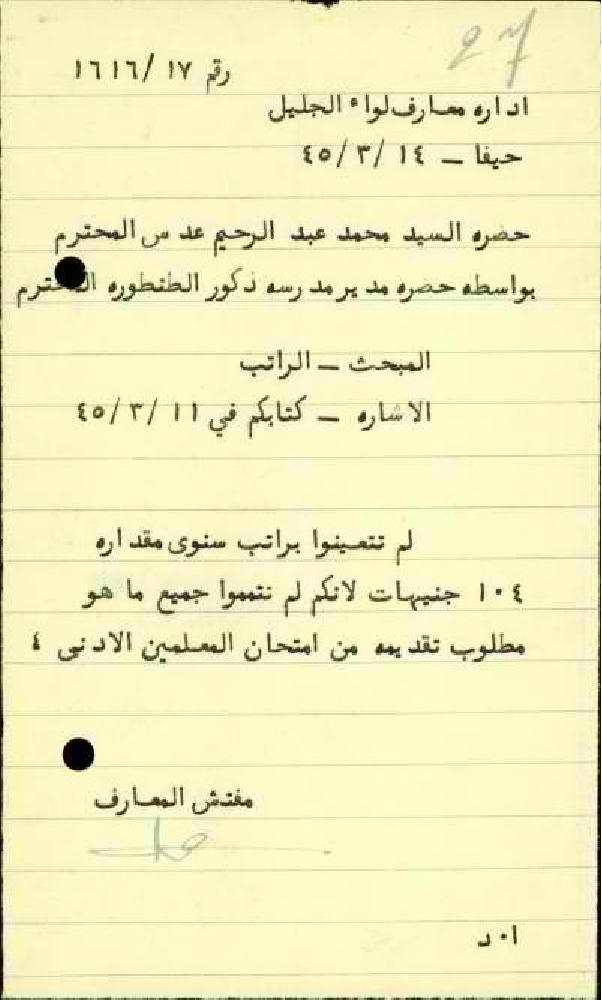 27
رقم ١٧ /١٦١٦
اداره معارف لواء الجليل
حيفا – ١٤ /٣ /٤٥
حضره السيد محمد عبد الرحيم عدس المحترم
بواسطه حضره مدير مدرسه ذكور الطنطوره المحترم
المبحث – الراتب
الاشاره – كتابكم في ١١ /٣ /٤٥
لم تتعينوا براتب سنوى مقداره
١٠٤ جنيهات لانكم لم تتمموا جميع ما هو
مطلوب تقديمه من امتحان المعلمين الادنى ٤
مفتش المعارف
ا٠د